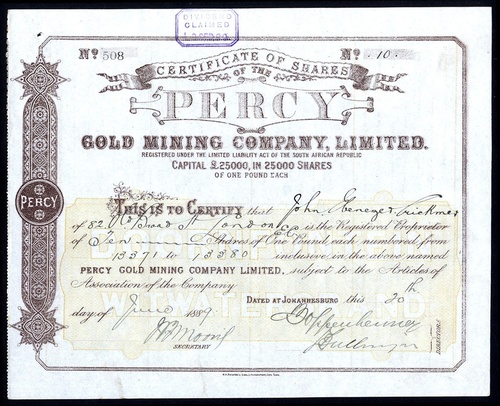 DIVIDEND
CLAIMED
No 508
No 10
CERTIFICATE OF SHARES
OF THE
PERCY
GOLD MINING COMPANY, LIMITED.
REGISTERED UNDER THE LIMITED LIABILITY ACT OF THE SOUTH AFRICAN REPUBLIC
CAPITAL £25000, IN 25000 SHARES
OF ONE POUND EACH
PERCY
THIS IS TO CERTIFY that John Ebenezer
of 82 Old Broad St London EC is the Registered Proprietor
of Ten Shares of One Pound each numbered from
13371 to 13380 inclusive in the above named
PERCY GOLD MINING COMPANY LIMITED, subject to the Articles of
Association of the Company
WITWATERSRAND
DATED AT JOHANNESBURG this 20th
day of June 1889
SECRETARY
DIRECTORS